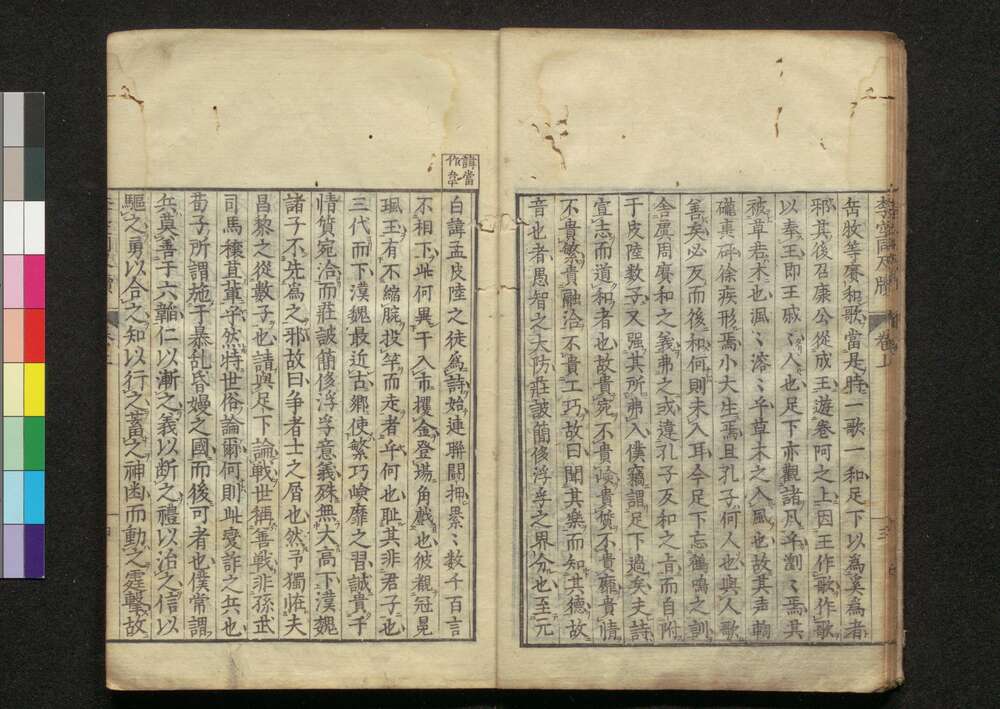 岳牧等賡和歌當是時一歌一和足下以為奚為者
邪其後召康公從成王遊卷阿之上因王作歌作歌
以奉王即王戚〻人也足下亦觀諸風乎瀏〻焉其
被草若木也渢〻溶〻乎草木之入風也故其声輷
礲輷砰徐疾形焉小大生焉且孔子何人也與人歌
善矣必反而後和何則未入耳今足下忘鶴鳴之訓
舍虞周賡和之義弗之或違孔子反和之旨而自附
于皮陸数子又强其所弗入僕竊謂足下過矣夫詩
宣志而道和者也故貴宛不貴嶮貴質不貴靡貴情
不貴繁貴融洽不貴工巧故曰聞其樂而知其德故
音也者愚智之大防莊詖簡侈浮孚之界分也至元
白諱孟皮陸之徒為詩始連聯鬪押累〻数千百言
不相下此何異于入市攫金登場角戲也彼覩冠冕
珮玉有不縮腕投竿而走者乎何也耻其非君子也
三代而下漢魏最近古鄉使繁巧嶮靡之習誠貴千
情質宛洽而莊詖簡侈浮孚意義殊無大高下漢魏
諸子不先為之邪故曰爭者士之屑也然予獨怪夫
昌黎之從數子也請與足下論戰世稱善戰非孫武
司馬穰苴軰乎然特世俗論爾何則此變詐之兵也
荀子所謂施于暴乱昏嫚之國而後可者也僕常謂
兵莫善于六韜仁以漸之義以断之禮以治之信以
驅之勇以合之知以行之蓄之神凾而動之霆擊故
諱當
作韋
李空同尺牘
卷上
十三
十四